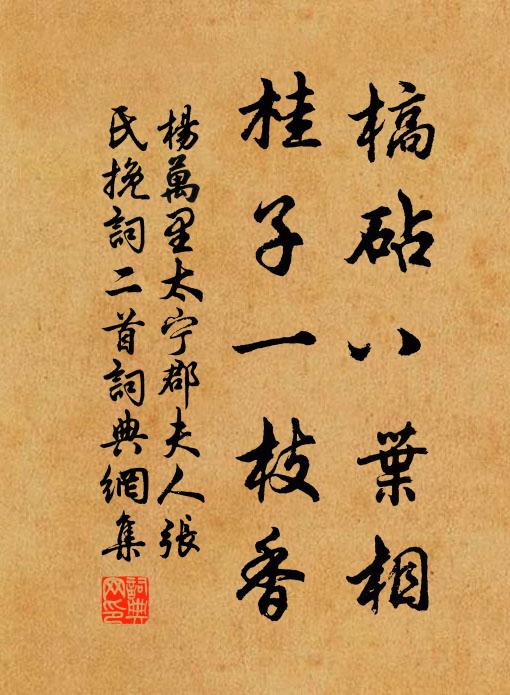 槁砧八葉相
桂子一枝香
楊萬里太宁郡夫人張
氏挽詞二首詞典網集
詞典
网印